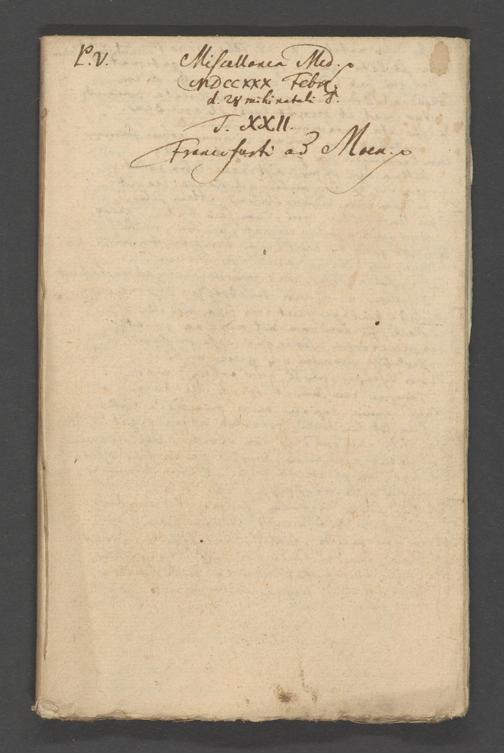 P.V. Miscellanea Med.
MDCCXXX Febr.
d. 28 mihi natali
T. XXII.
Francofurti ad Moen.